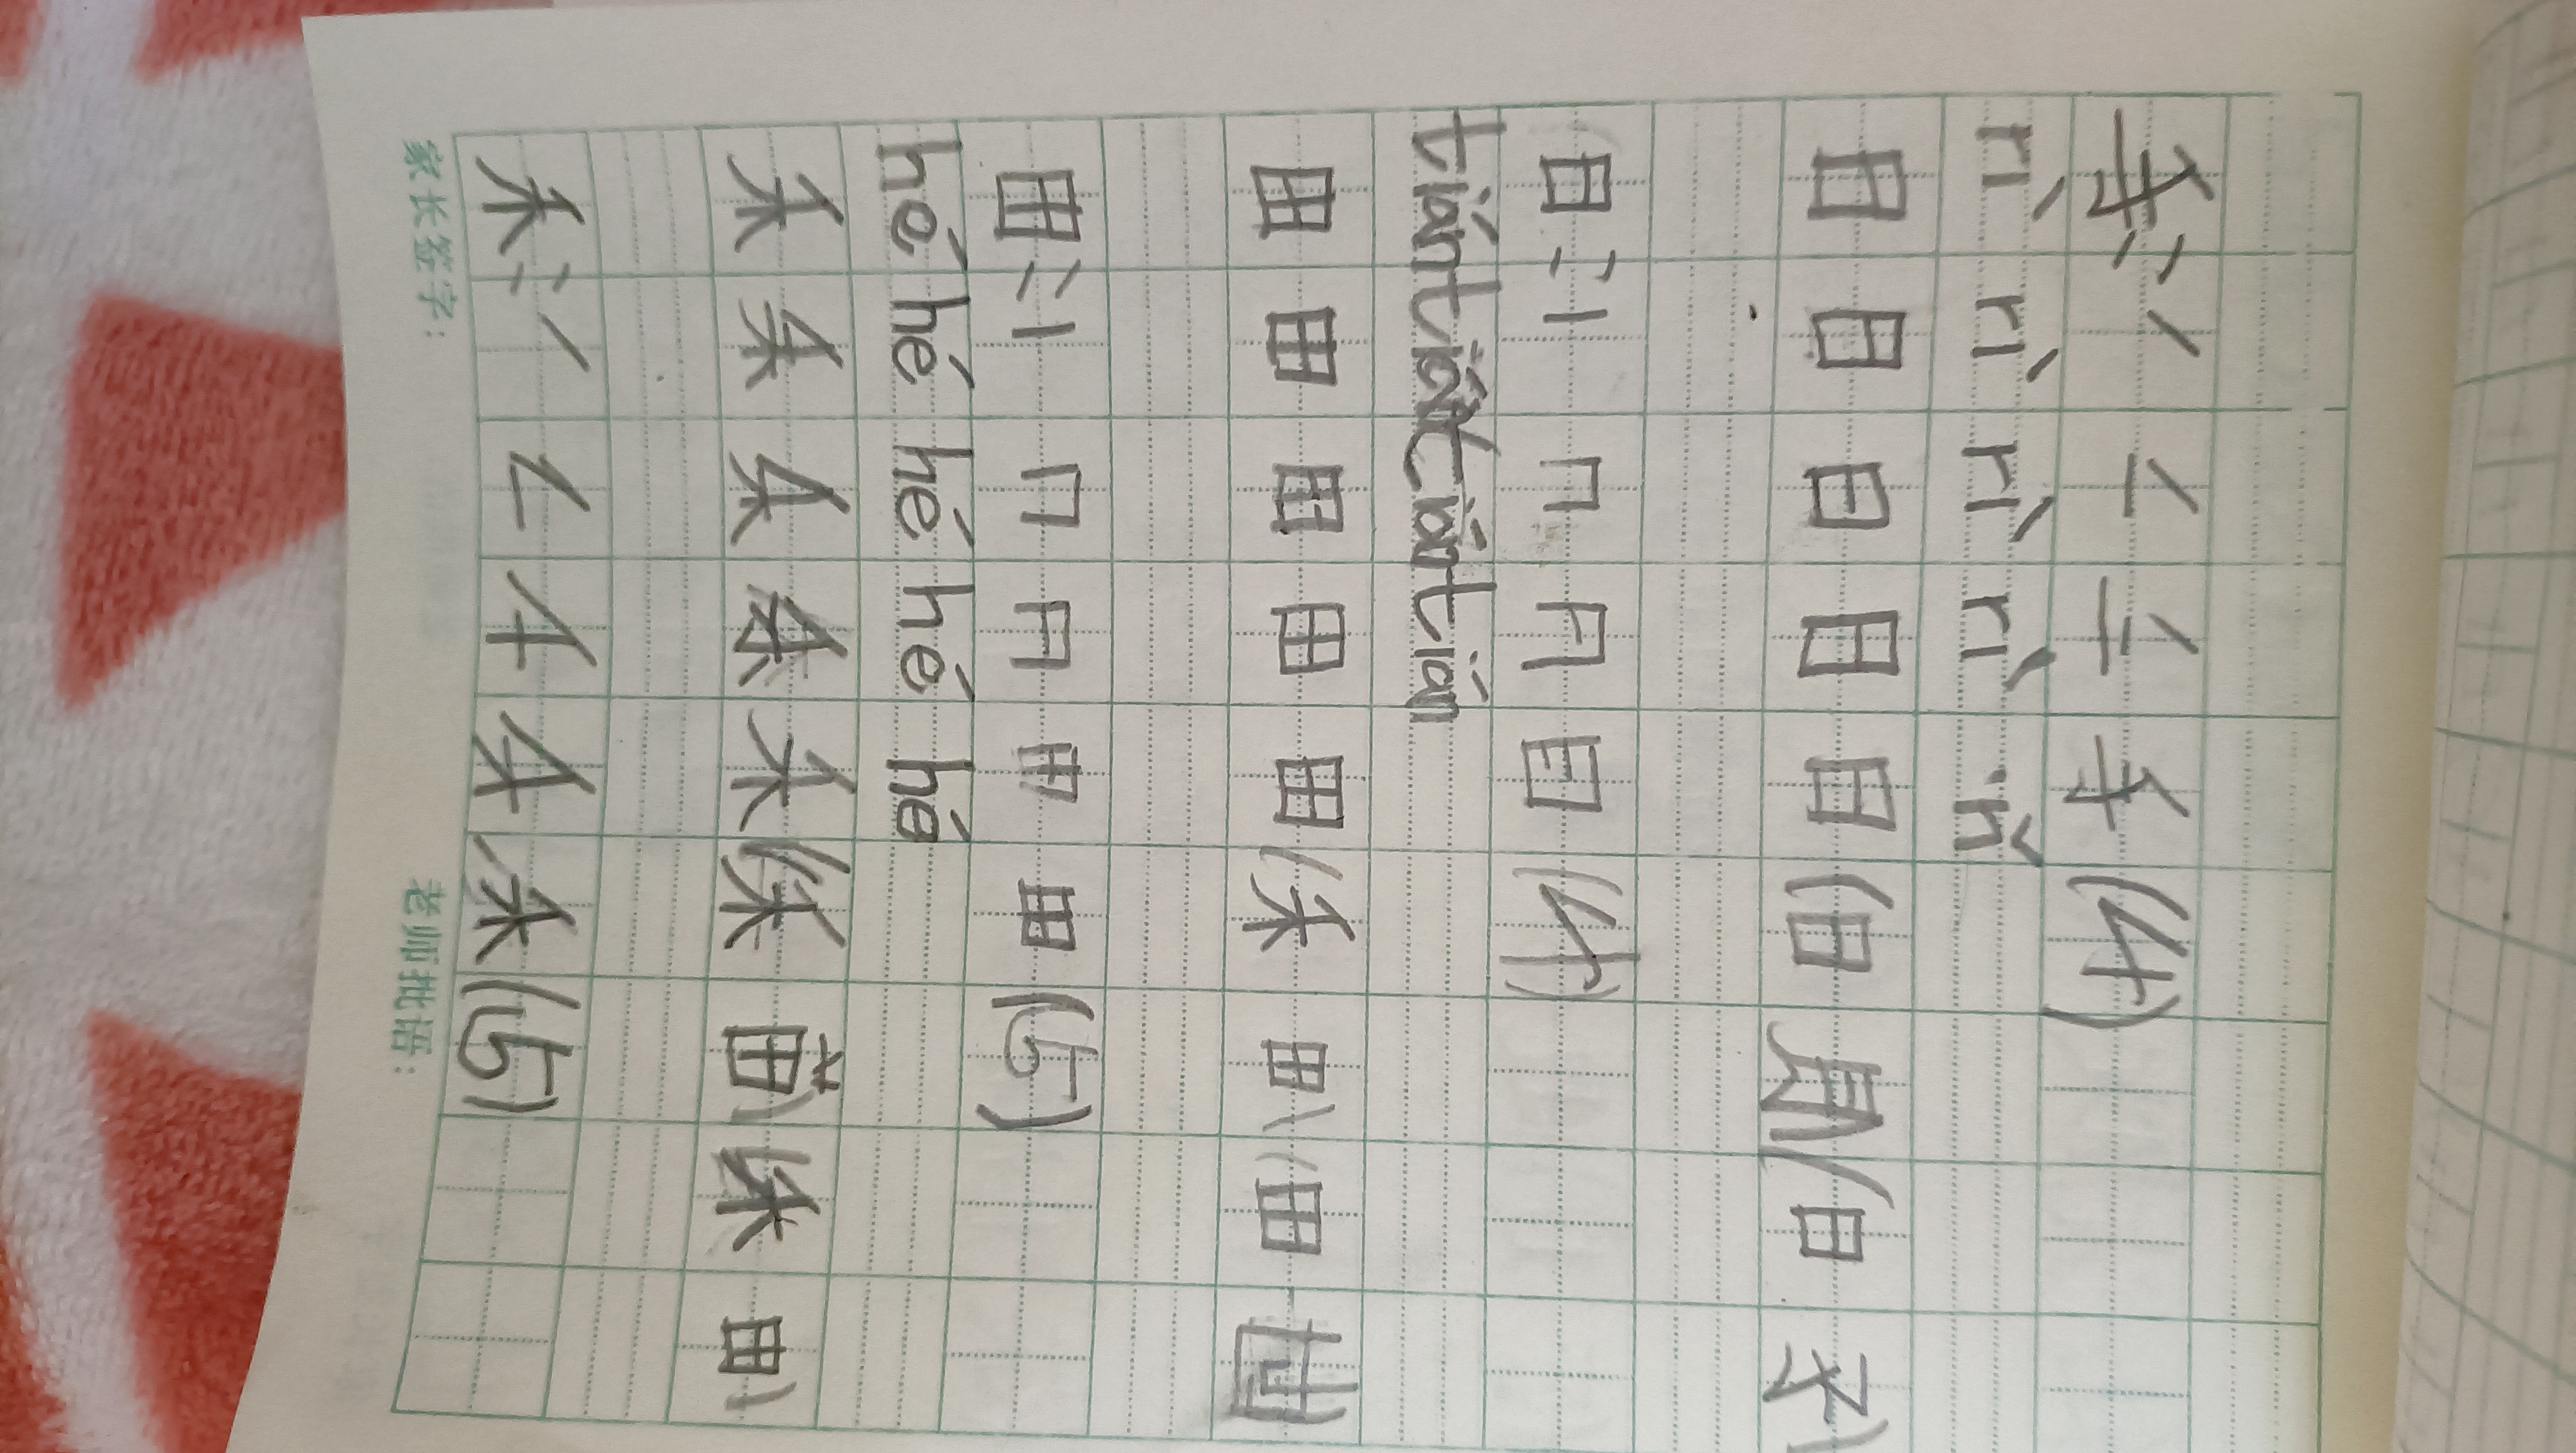 手：丿 二 三 手 (4)
rì rì rì rì rì
日 日 日 日 日 (日月)(日子)
日：丨 冂 日 日 (4)
tián tián tián tián
田 田 田 田 田 (禾田)(田
田：丨 冂 日 田 田 (5)
hé hé hé hé hé
禾 禾 禾 禾 禾 (禾苗)(禾田)
禾：丿 二 千 禾 禾 (5)
家长签字： 老师批语：